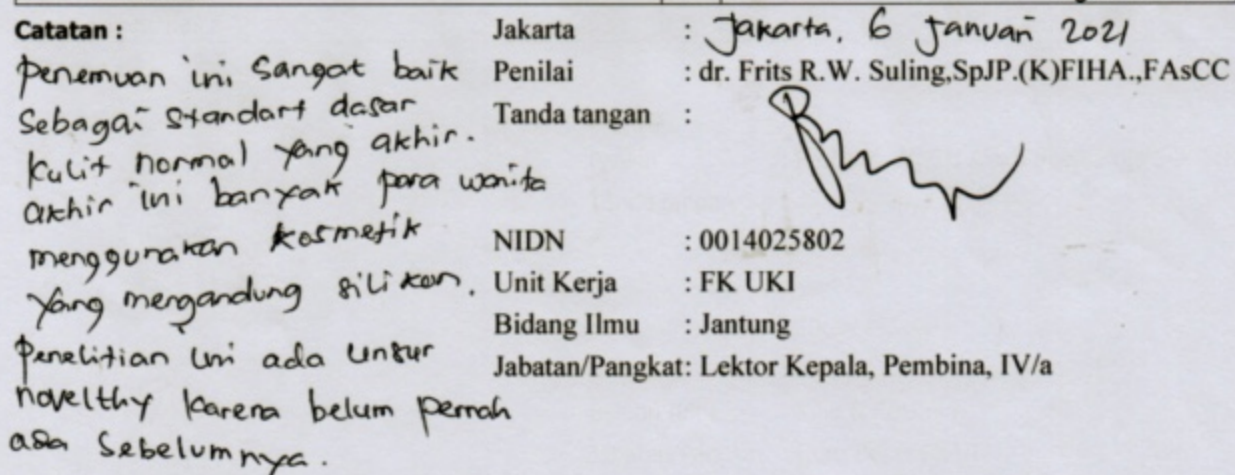 Catatan :
Penemuan ini Sangat baik
Sebagai Standart dasar
kulit normal yang akhir.
akhir ini banyak para wanita
menggunakan kosmetik
yang mengandung silikon.
Penelitian ini ada unsur
novelthy karena belum pernah
ada Sebelumnya.
Jakarta : Jakarta, 6 Januari 2021
Penilai : dr. Frits R.W. Suling,SpJP.(K)FIHA.,FAsCC
Tanda tangan :
NIDN : 0014025802
Unit Kerja : FK UKI
Bidang Ilmu : Jantung
Jabatan/Pangkat: Lektor Kepala, Pembina, IV/a